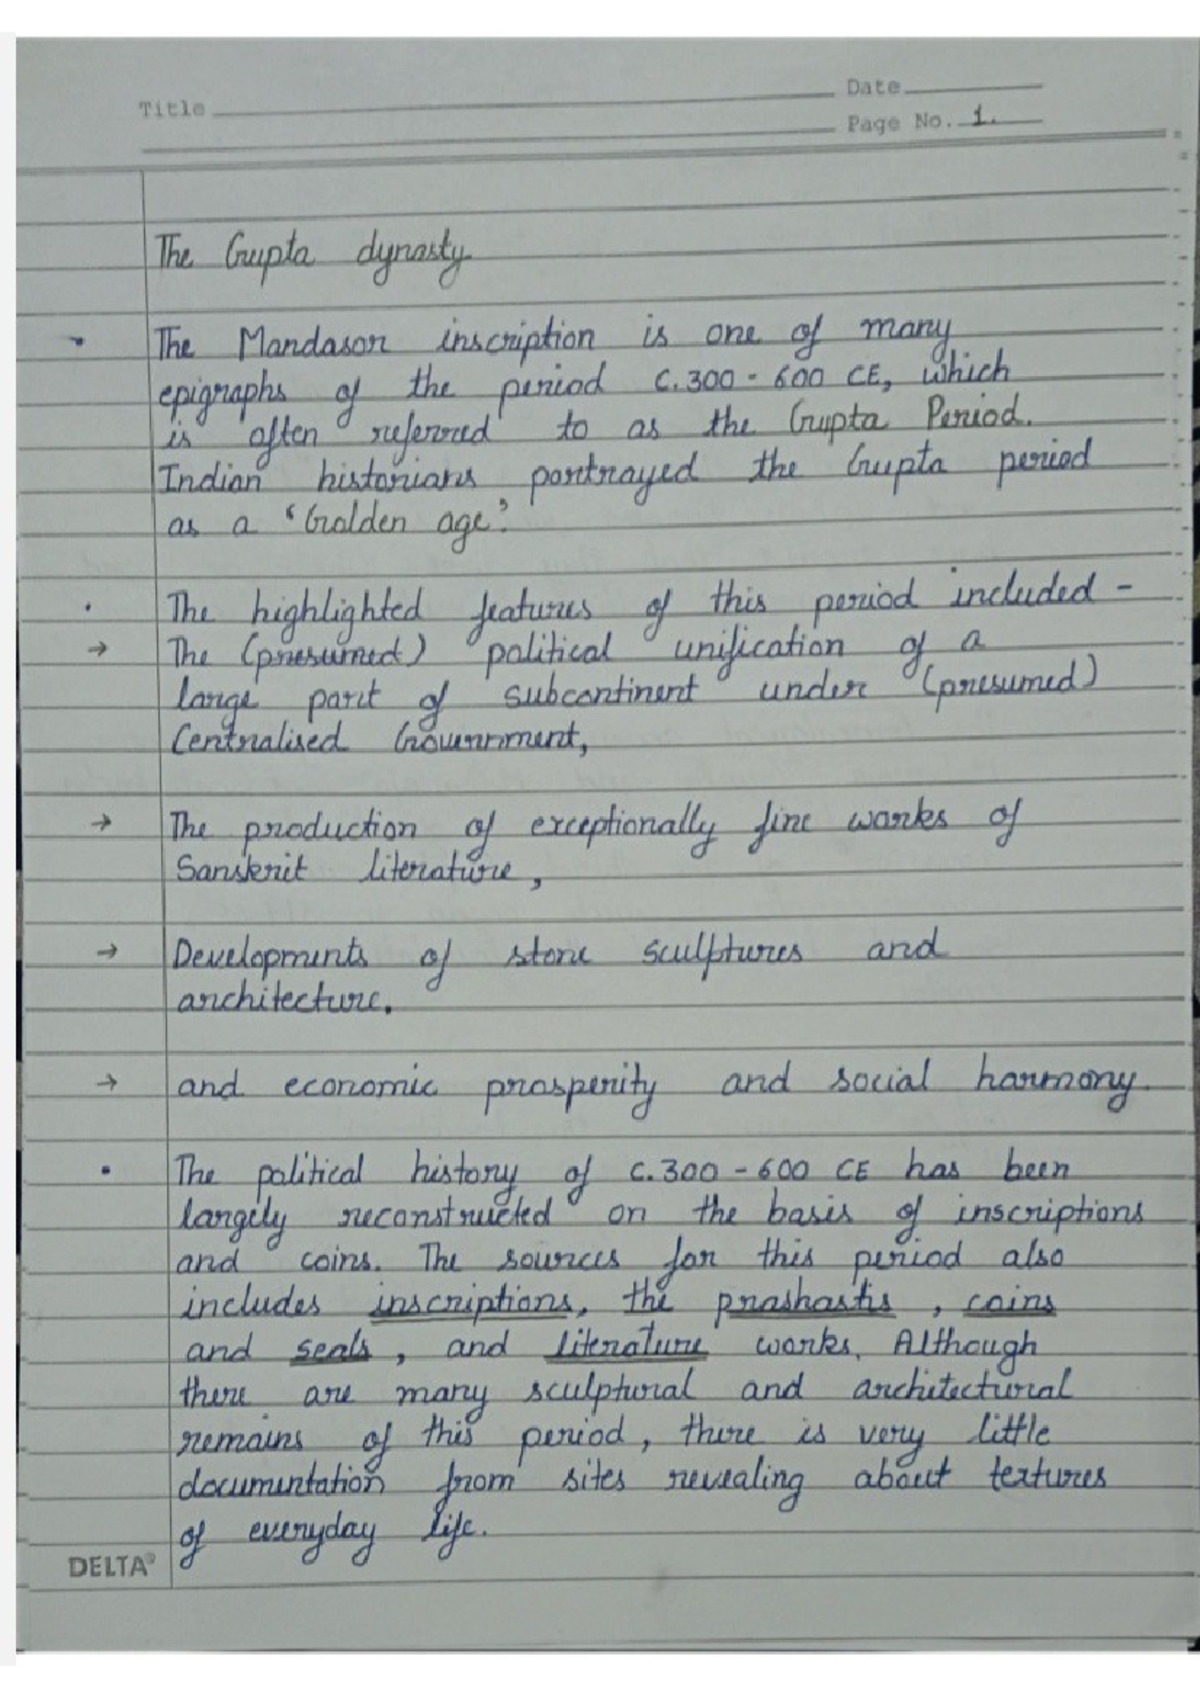 Title
Date
Page No. 1.
The Gupta dynasty
• The Mandasor inscription is one of many
epigraphs of the period c.300 - 600 CE, which
is often referred to as the Gupta Period.
Indian historians portrayed the Gupta period
as a 'Golden age'.
• The highlighted features of this period included -
→ The (presumed) political unification of a
large part of subcontinent under (presumed)
Centralised Government,
→ The production of exceptionally fine works of
Sanskrit literature,
→ Developments of stone sculptures and
architecture.
→ and economic prosperity and social harmony.
• The political history of c.300 - 600 CE has been
largely reconstructed on the basis of inscriptions
and coins. The sources for this period also
includes inscriptions, the prashastis, coins
and seals, and literature works. Although
there are many sculptural and architectural
remains of this period, there is very little
documentation from sites revealing about textures
of everyday life.
DELTA®